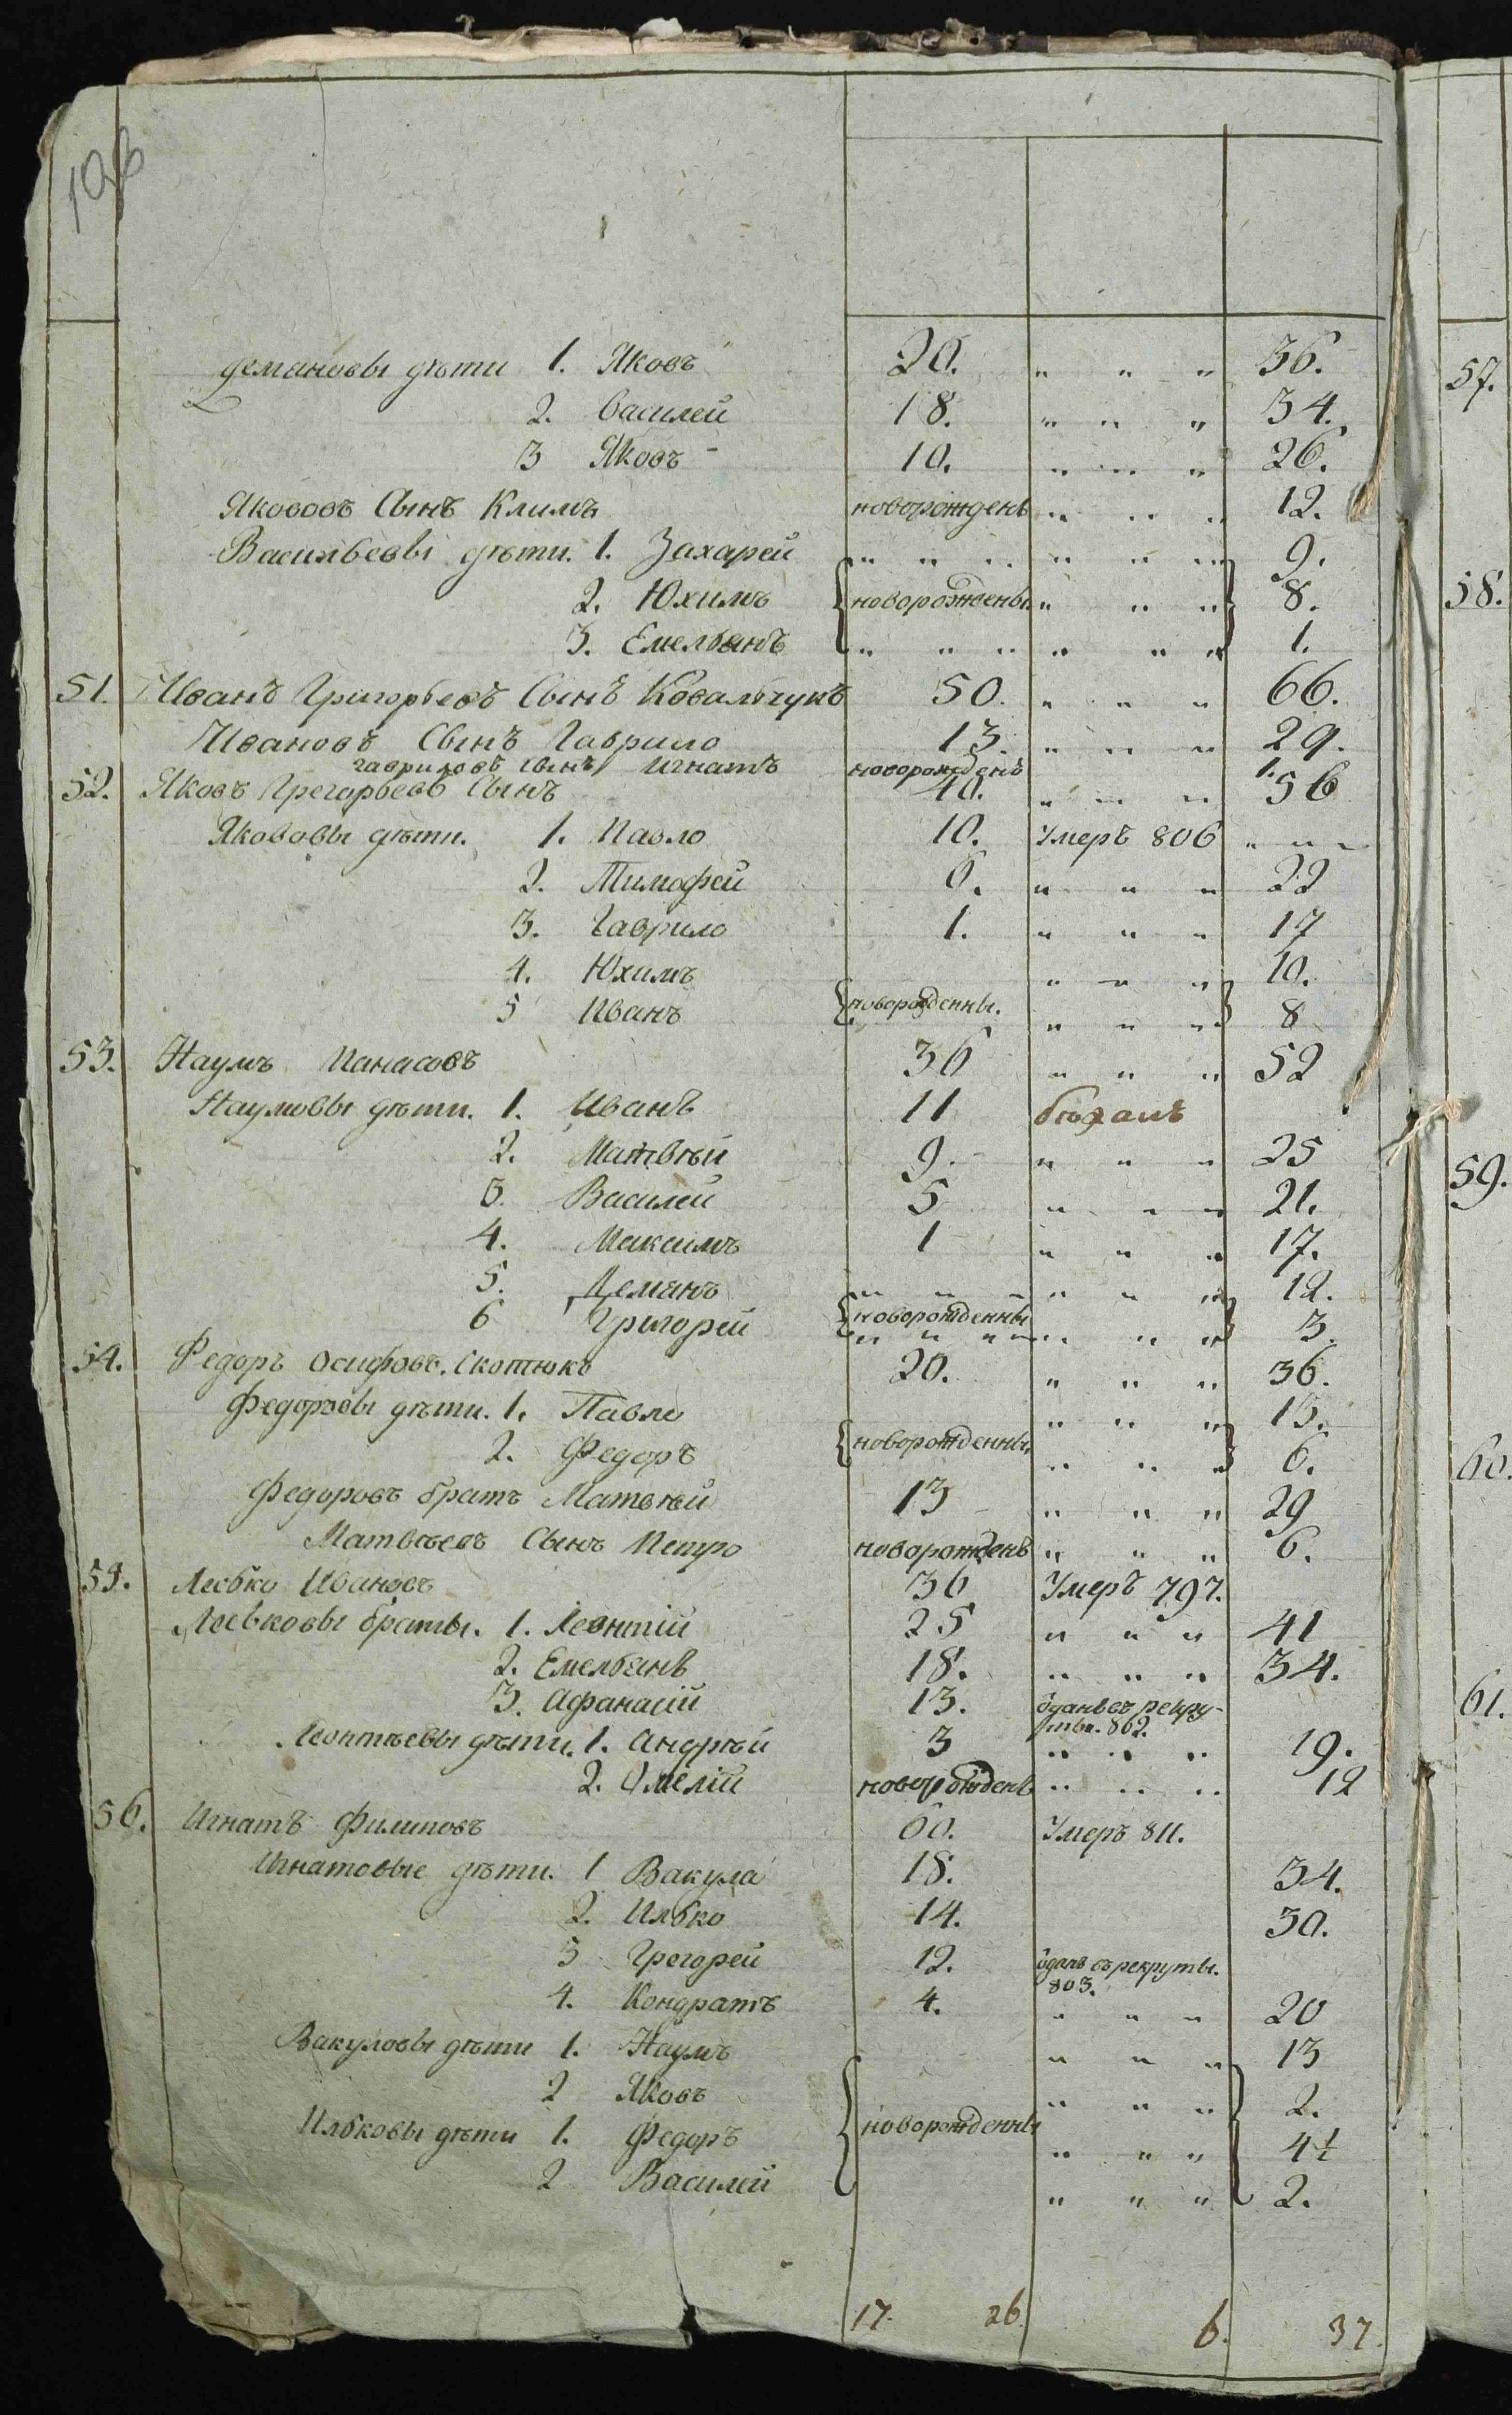 198
Демановы дѣти 1. Яковъ 20. " " " 36.
2. Василей 18. " " " 34.
3 Яковъ 10. " " " 26.
Якововъ Сынъ Климъ новорожденъ " " " 12.
Васильевы дѣти. 1. Захарей " " " " " " 9.
2. Юхимъ новорождены " " " 8.
3. Емельянъ " " " " " " 1.
51. Иванъ Григорьевъ Сынъ Ковальчукъ 50. " " " 66.
Ивановъ Сынъ Гаврило 13. " " " 29.
Гавриловъ Сынъ Игнатъ новорожденъ 1.
52. Яковъ Грегорьевъ Сынъ 40. " " " 56
Якововы дѣти. 1. Павло 10. Умеръ 806 " " "
2. Тимофей 6. " " " 22
3. Гаврило 1. " " " 17
4. Юхимъ " " " 10.
5 Иванъ новорожденны. " " " 8
53. Наумъ Панасовъ 36 " " " 52
Наумовы дѣти. 1. Иванъ 11 бѣжалъ
2. Матвѣй 9. " " " 25
3. Василей 5 " " " 21.
4. Максимъ 1 " " " 17.
5. Деманъ " " " " " " 12.
6 Григорей новорожденны " " " 3.
54. Федоръ Осифовъ. Скотюкъ 20. " " " 36.
Федоровы дѣти. 1. Павло " " " 13.
2. Федоръ новорожденны " " " 6.
Федоровъ братъ Матвѣй 13 " " " 29
Матвѣевъ Сынъ Петро новорожденъ " " " 6.
55. Левко Ивановъ 36 Умеръ 797.
Левковы браты. 1. Леонтій 25 " " " 41
2. Емельянъ 18. " " " 34.
3. Афанасій 13. Отданъ въ рекру-
ты. 802.
Леонтьевы дѣти. 1. Андрѣй 3 " " " 19.
2. Омелій новорожденъ " " " 12
56. Игнатъ Филиповъ 60. Умеръ 811.
Игнатовые дѣти. 1 Вакула 18. 34.
2. Илько 14. 30.
3 Грегорей 12. Отданъ въ рекруты.
803.
4. Кондратъ 4. " " " 20
Вакуловы дѣти 1. Наумъ " " " 13
2 Яковъ " " " 2.
Ильковы дѣти 1. Федоръ новорожденны " " " 4½
2 Василей " " " 2.
17. 26 6. 37.
57.
58.
59.
60.
61.